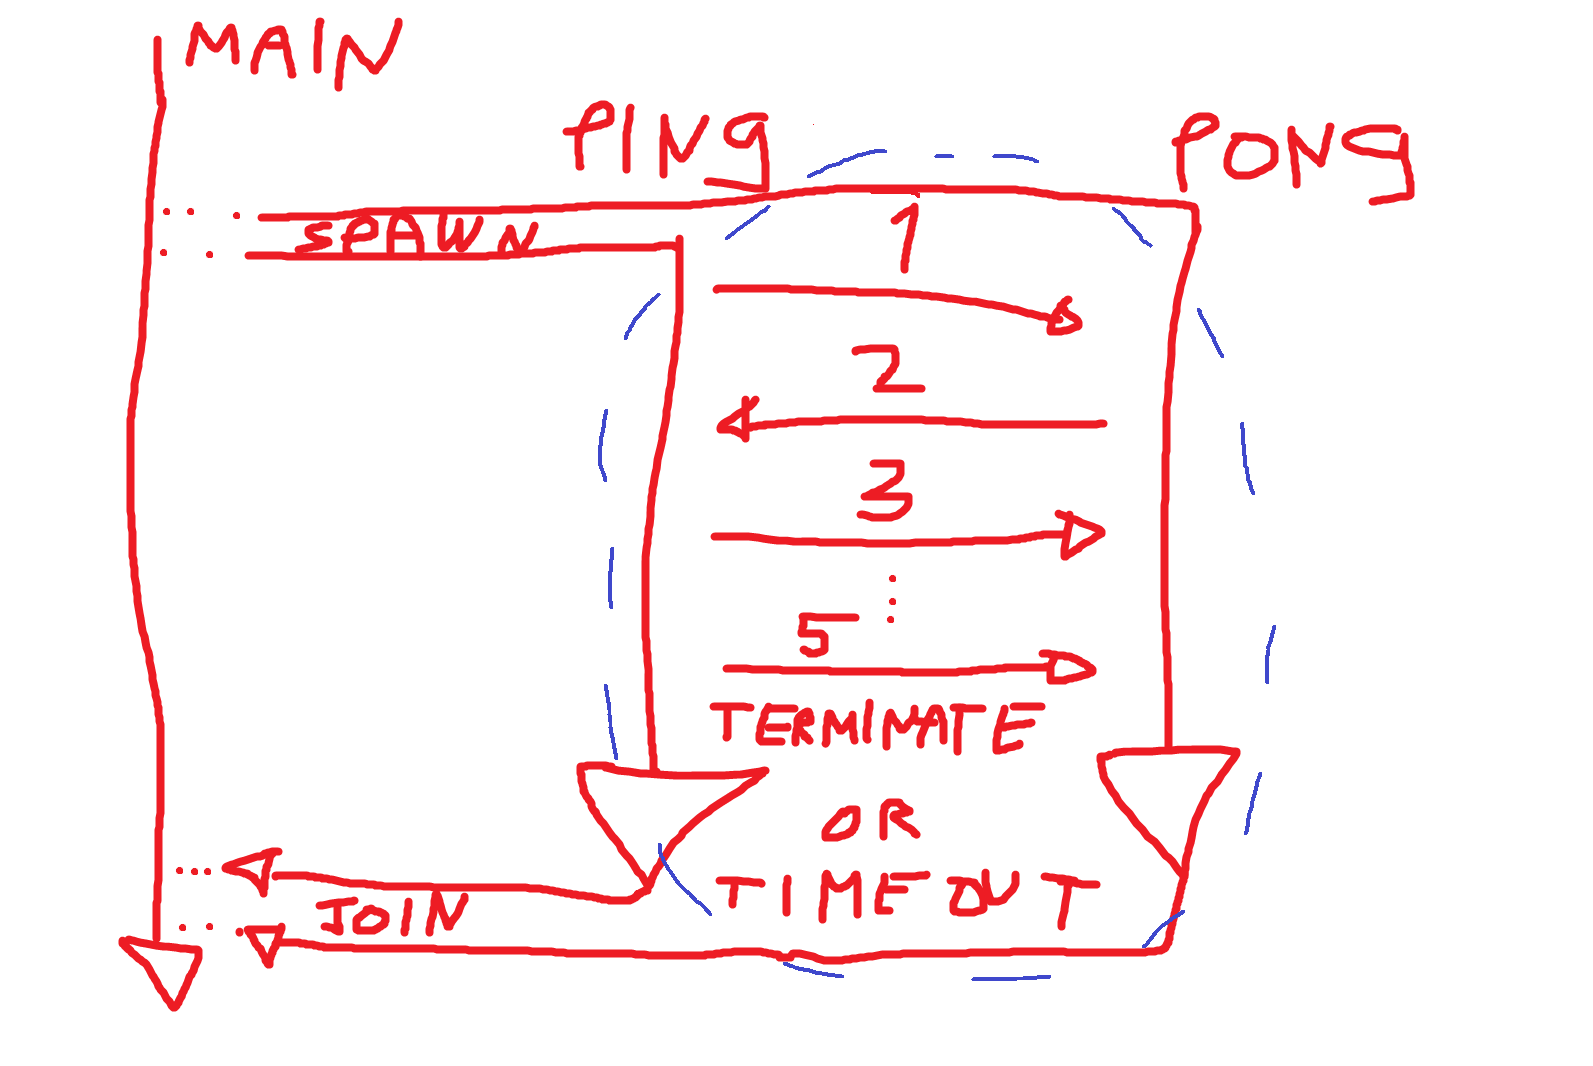 MAIN
PING
PONG
SPAWN
1
2
3
5
TERMINATE
OR
TIMEOUT
JOIN